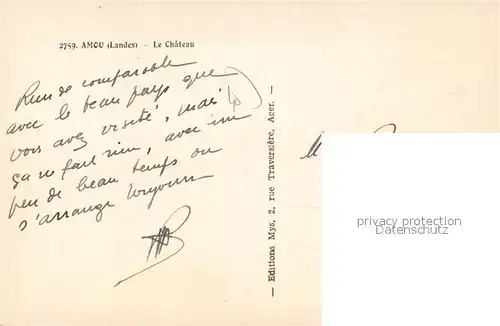 2759. AMOU (Landes) - Le Château
Rien de comparable
avec le beau pays que
vous avez visité, mais
ça ne fait rien, avec un
peu de beau temps on
s'arrange toujours
— Editions Mys, 2, rue Traversière, Ager. —
privacy protection
Datenschutz